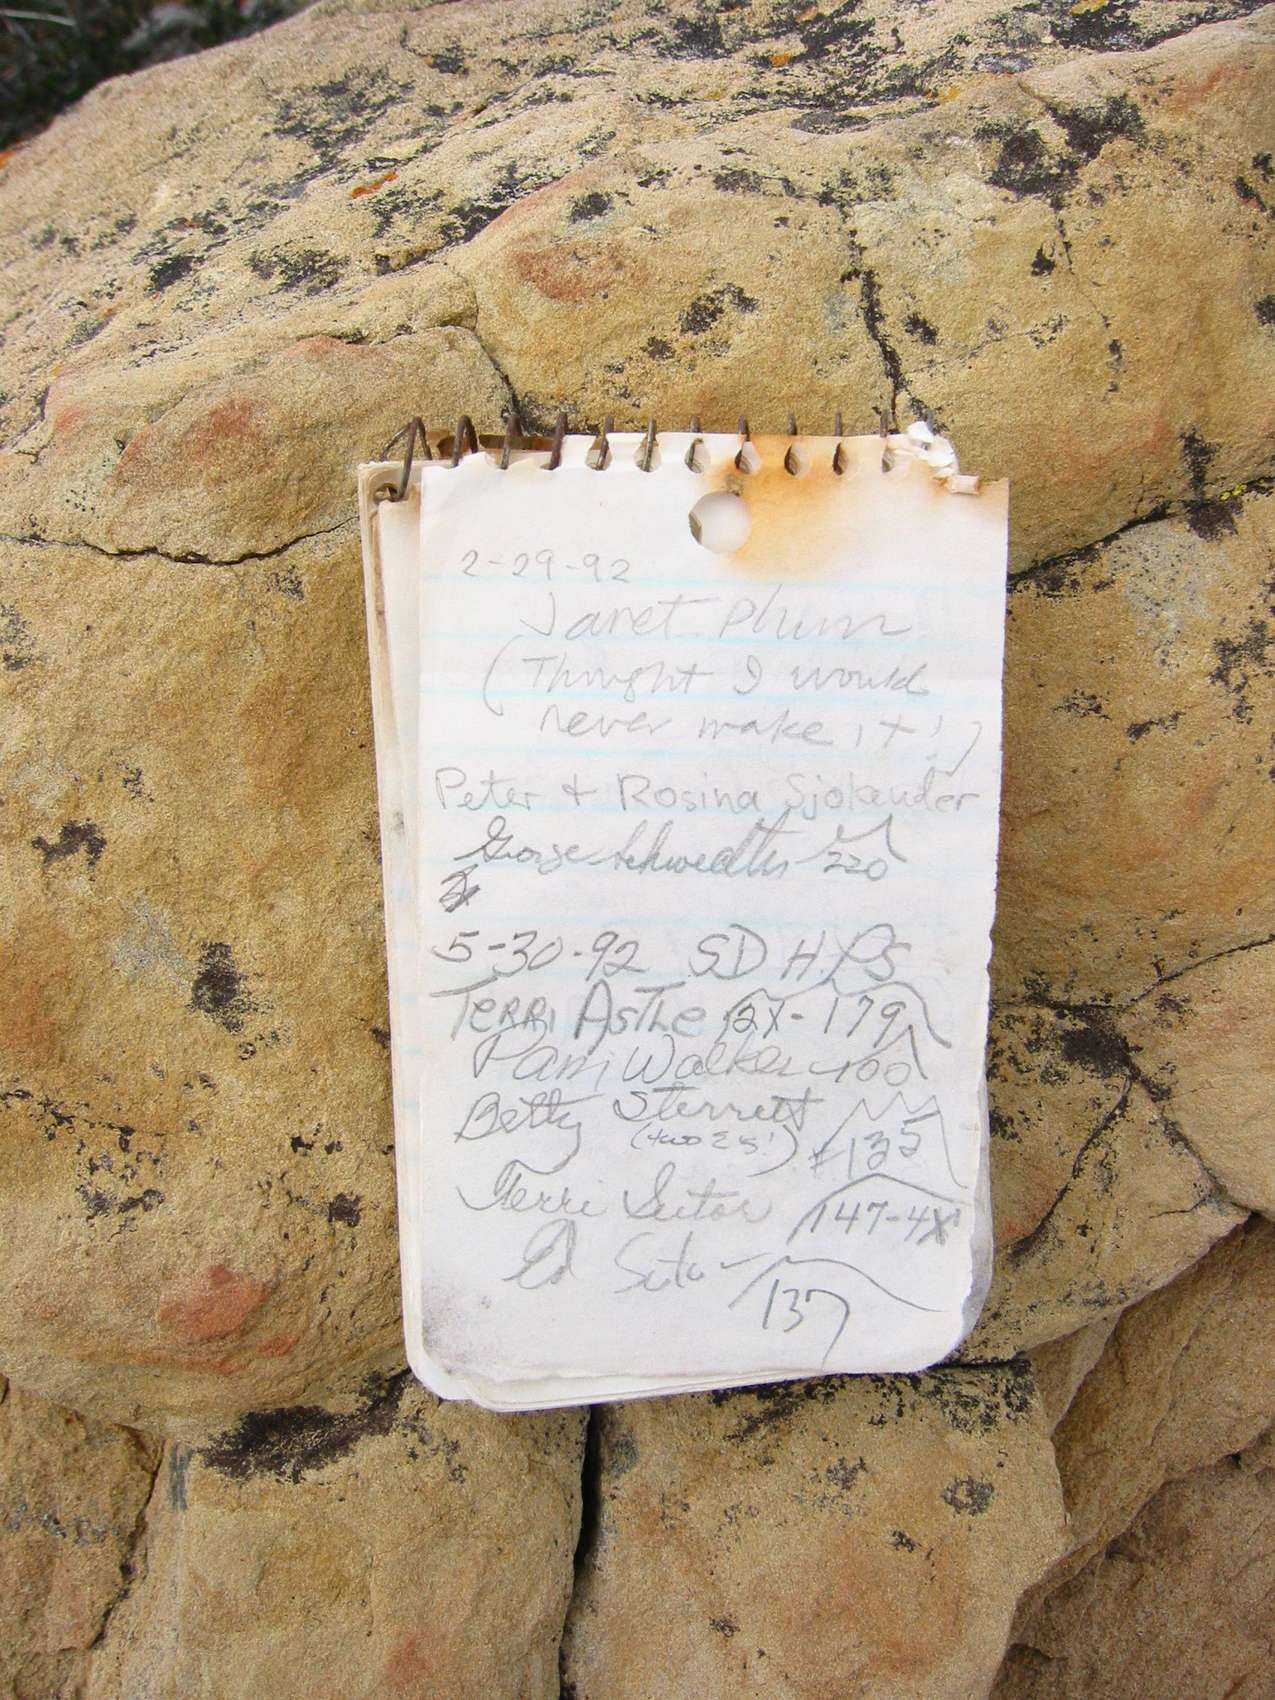 2-29-92
Janet Plum
(Thought I would
never make it!)
Peter + Rosina Sjolander
George 220
5-30-92 SD HPS
TERRI AsThe 2X-179
Pam Walker 100
Betty Sterrett
(two 25!) #135
Terri Sutor 147-4X
Ed Sutor
137